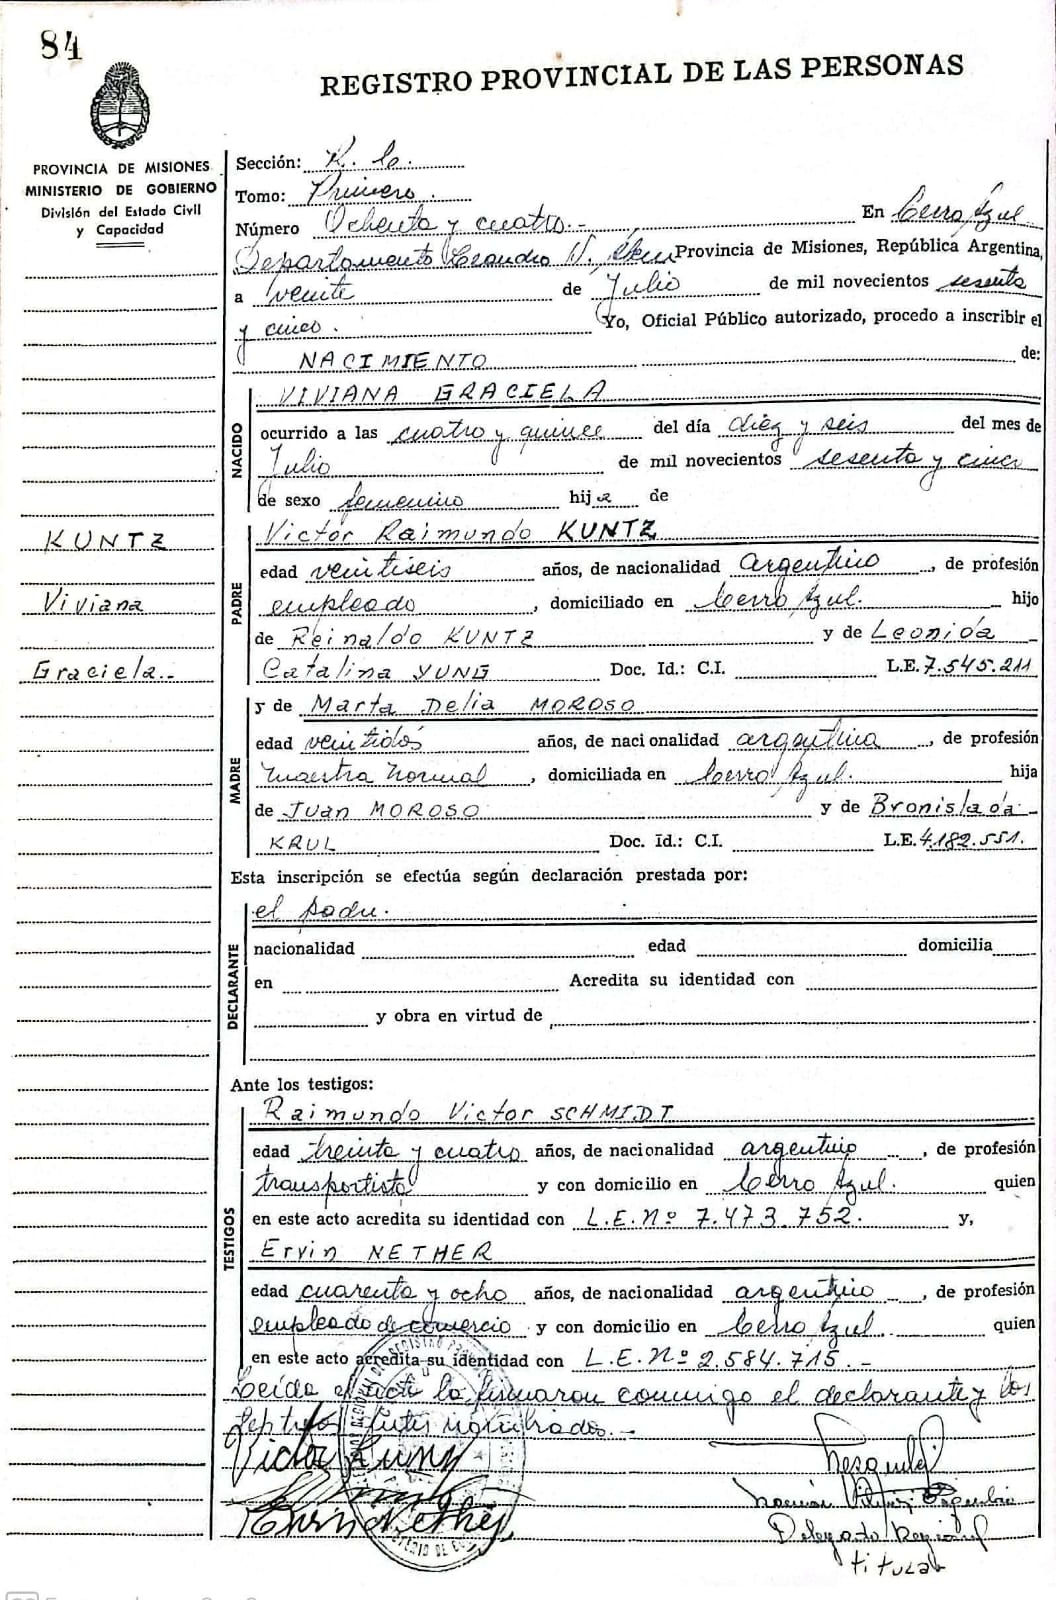 84
REGISTRO PROVINCIAL DE LAS PERSONAS
PROVINCIA DE MISIONES
MINISTERIO DE GOBIERNO
División del Estado Civil
y Capacidad
Sección: R. la.
Tomo: Primero.
Número Ochenta y cuatro.- En Cerro Azul
Departamento Leandro N. Alem Provincia de Misiones, República Argentina,
a veinte de Julio de mil novecientos sesenta
y cinco. Yo, Oficial Público autorizado, procedo a inscribir el
NACIMIENTO de:
NACIDO
VIVIANA GRACIELA
ocurrido a las cuatro y quince del día diez y seis del mes de
Julio de mil novecientos sesenta y cinco
de sexo femenino hija de
KUNTZ
Viviana
Graciela.-
PADRE
Victor Raimundo KUNTZ
edad veintiseis años, de nacionalidad argentino, de profesión
empleado, domiciliado en Cerro Azul. hijo
de Reinaldo KUNTZ y de Leonida
Catalina YUNG Doc. Id.: C.I. L.E. 7.545.211
MADRE
y de Marta Delia MOROSO
edad veintidós años, de nacionalidad argentina, de profesión
maestra normal, domiciliada en Cerro Azul. hija
de Juan MOROSO y de Bronislada
KRUL Doc. Id.: C.I. L.E. 4.182.551.
Esta inscripción se efectúa según declaración prestada por:
DECLARANTE
el padre.
nacionalidad edad domicilia
en Acredita su identidad con
y obra en virtud de
Ante los testigos:
TESTIGOS
Raimundo Victor SCHMIDT
edad treinta y cuatro años, de nacionalidad argentino, de profesión
transportista y con domicilio en Cerro Azul. quien
en este acto acredita su identidad con L.E.Nº 7.473.752. y,
Ervin NETHER
edad cuarenta y ocho años, de nacionalidad argentino, de profesión
empleado de comercio y con domicilio en Cerro Azul. quien
en este acto acredita su identidad con L.E.Nº 2.584.715.-
Leída el acta la firmaron conmigo el declarante y los
testigos antes nombrados.-
Victor Kuntz
Ervin Nether
Delegado Regional
titular